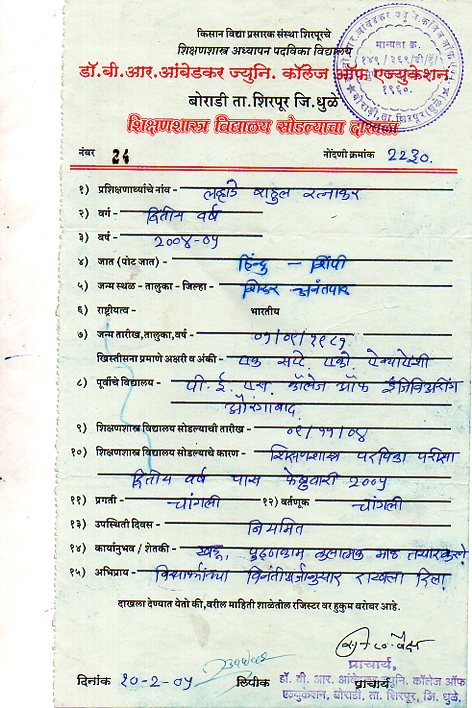 किसान विद्या प्रसारक संस्था शिरपूरचे
शिक्षणशास्त्र अध्यापन पदविका विद्यालय
डॉ.बी.आर.आंबेडकर ज्युनि. कॉलेज ऑफ एज्युकेशन
बोराडी ता.शिरपूर जि.धुळे
शिक्षणशास्त्र विद्यालय सोडल्याचा दाखला
मान्यता क्र.
१९९०.
नंबर 24 नोंदणी क्रमांक २२३०.
१) प्रशिक्षणार्थ्यांचे नांव - राहुल रत्नाकर
२) वर्ग - द्वितीय वर्ष
३) वर्ष - २००४-०५
४) जात (पोट जात) - हिंन्दु - शिंपी
५) जन्म स्थळ - तालुका - जिल्हा -
६) राष्ट्रीयत्व - भारतीय
७) जन्म तारीख,तालुका,वर्ष - ०१/०९/१९८१
ख्रिस्तीसना प्रमाणे अक्षरी व अंकी - एक सप्टें.
८) पूर्वीचे विद्यालय - पी.ई.एस. कॉलेज ऑफ इंजिनिअरींग
औरंगाबाद
९) शिक्षणशास्त्र विद्यालय सोडल्याची तारीख - ०९/११/०४
१०) शिक्षणशास्त्र विद्यालय सोडल्याचे कारण - शिक्षणशास्त्र पदविका परीक्षा
द्वितीय वर्ष पास फेब्रुवारी २००५
११) प्रगती - चांगली १२) वर्तणूक - चांगली
१३) उपस्थिती दिवस - नियमित
१४) कार्यानुभव / शेतकी - खडू, पुठ्ठाकाम कलात्मक
१५) अभिप्राय - विनंतीअर्जानुसार दाखला दिला.
दाखला देण्यात येतो की,वरील माहिती शाळेतील रजिस्टर वर हुकुम बरोबर आहे.
दिनांक १०-2-०५ लिपीक प्राचार्य
प्राचार्य,
डॉ. बी. आर. आंबेडकर ज्युनि. कॉलेज ऑफ
एज्युकेशन, बोराडी, ता. शिरपूर, जि. धुळे.